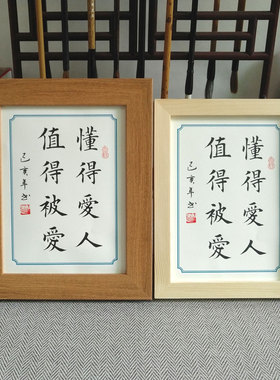 懂得愛人
值得被愛
己亥年书
懂得愛人
值得被愛
己亥年书